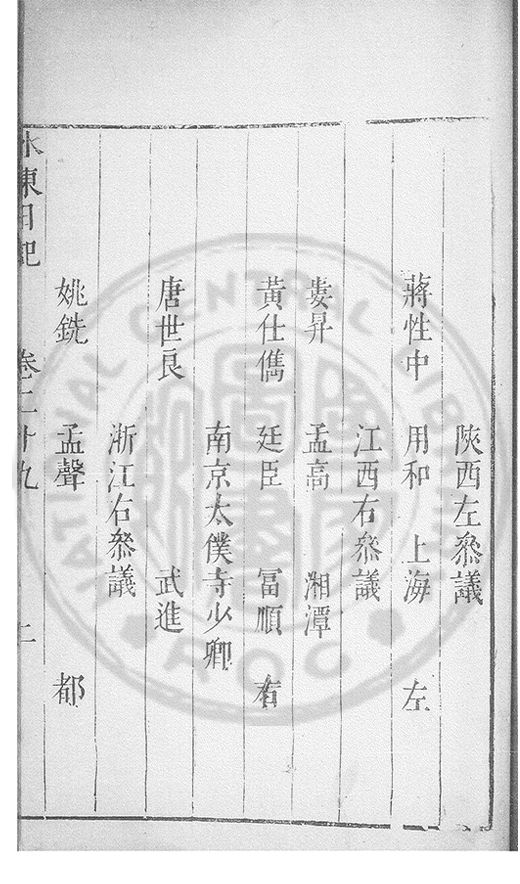 陝西左叅議
蔣性中 用和 上海 左
江西右叅議
婁昇 孟高 湘潭
黃仕儁 廷臣 冨順 右
南京太僕寺少卿
唐世良 武進
浙江右叅議
姚銑 孟聲 都
水東日記 卷二十九